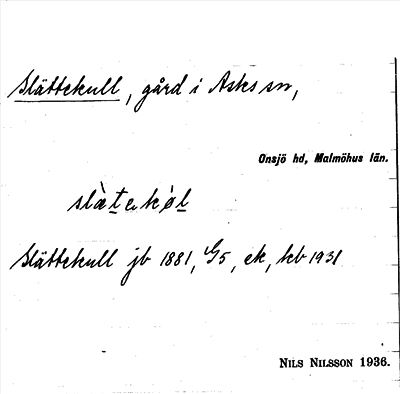 Slättekull, gård i Asks sn,
Onsjö hd, Malmöhus län.
slä̀tekøl
Slättekull jb 1881, G5, ek, kb 1931
NILS NILSSON 1936.